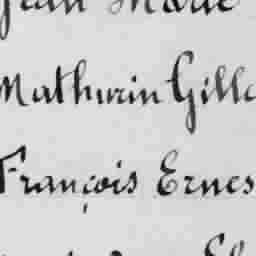 Jean Marie
Mathurin Gille
François Ernes